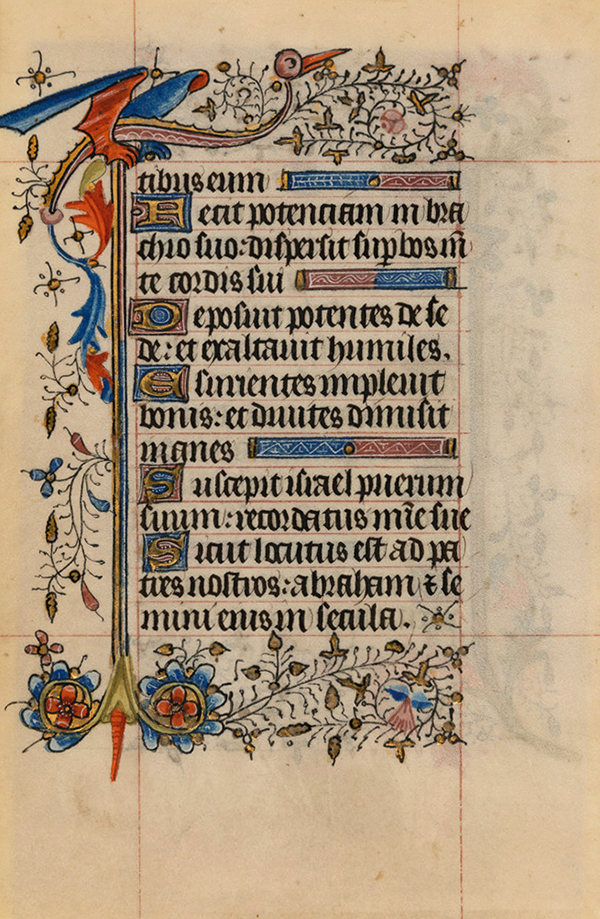 tibus eum
Fecit potenciam in bra
chio suo: dispersit supbos m̄
te cordis sui
Deposuit potentes de se
de: et exaltauit humiles.
Esurientes impleuit
bonis: et diuites dimisit
inanes
Suscepit israel puerum
suum: recordatus mīe sue
Sicut locutus est ad pa
tres nostros: abraham ⁊ se
mini eius in secula.